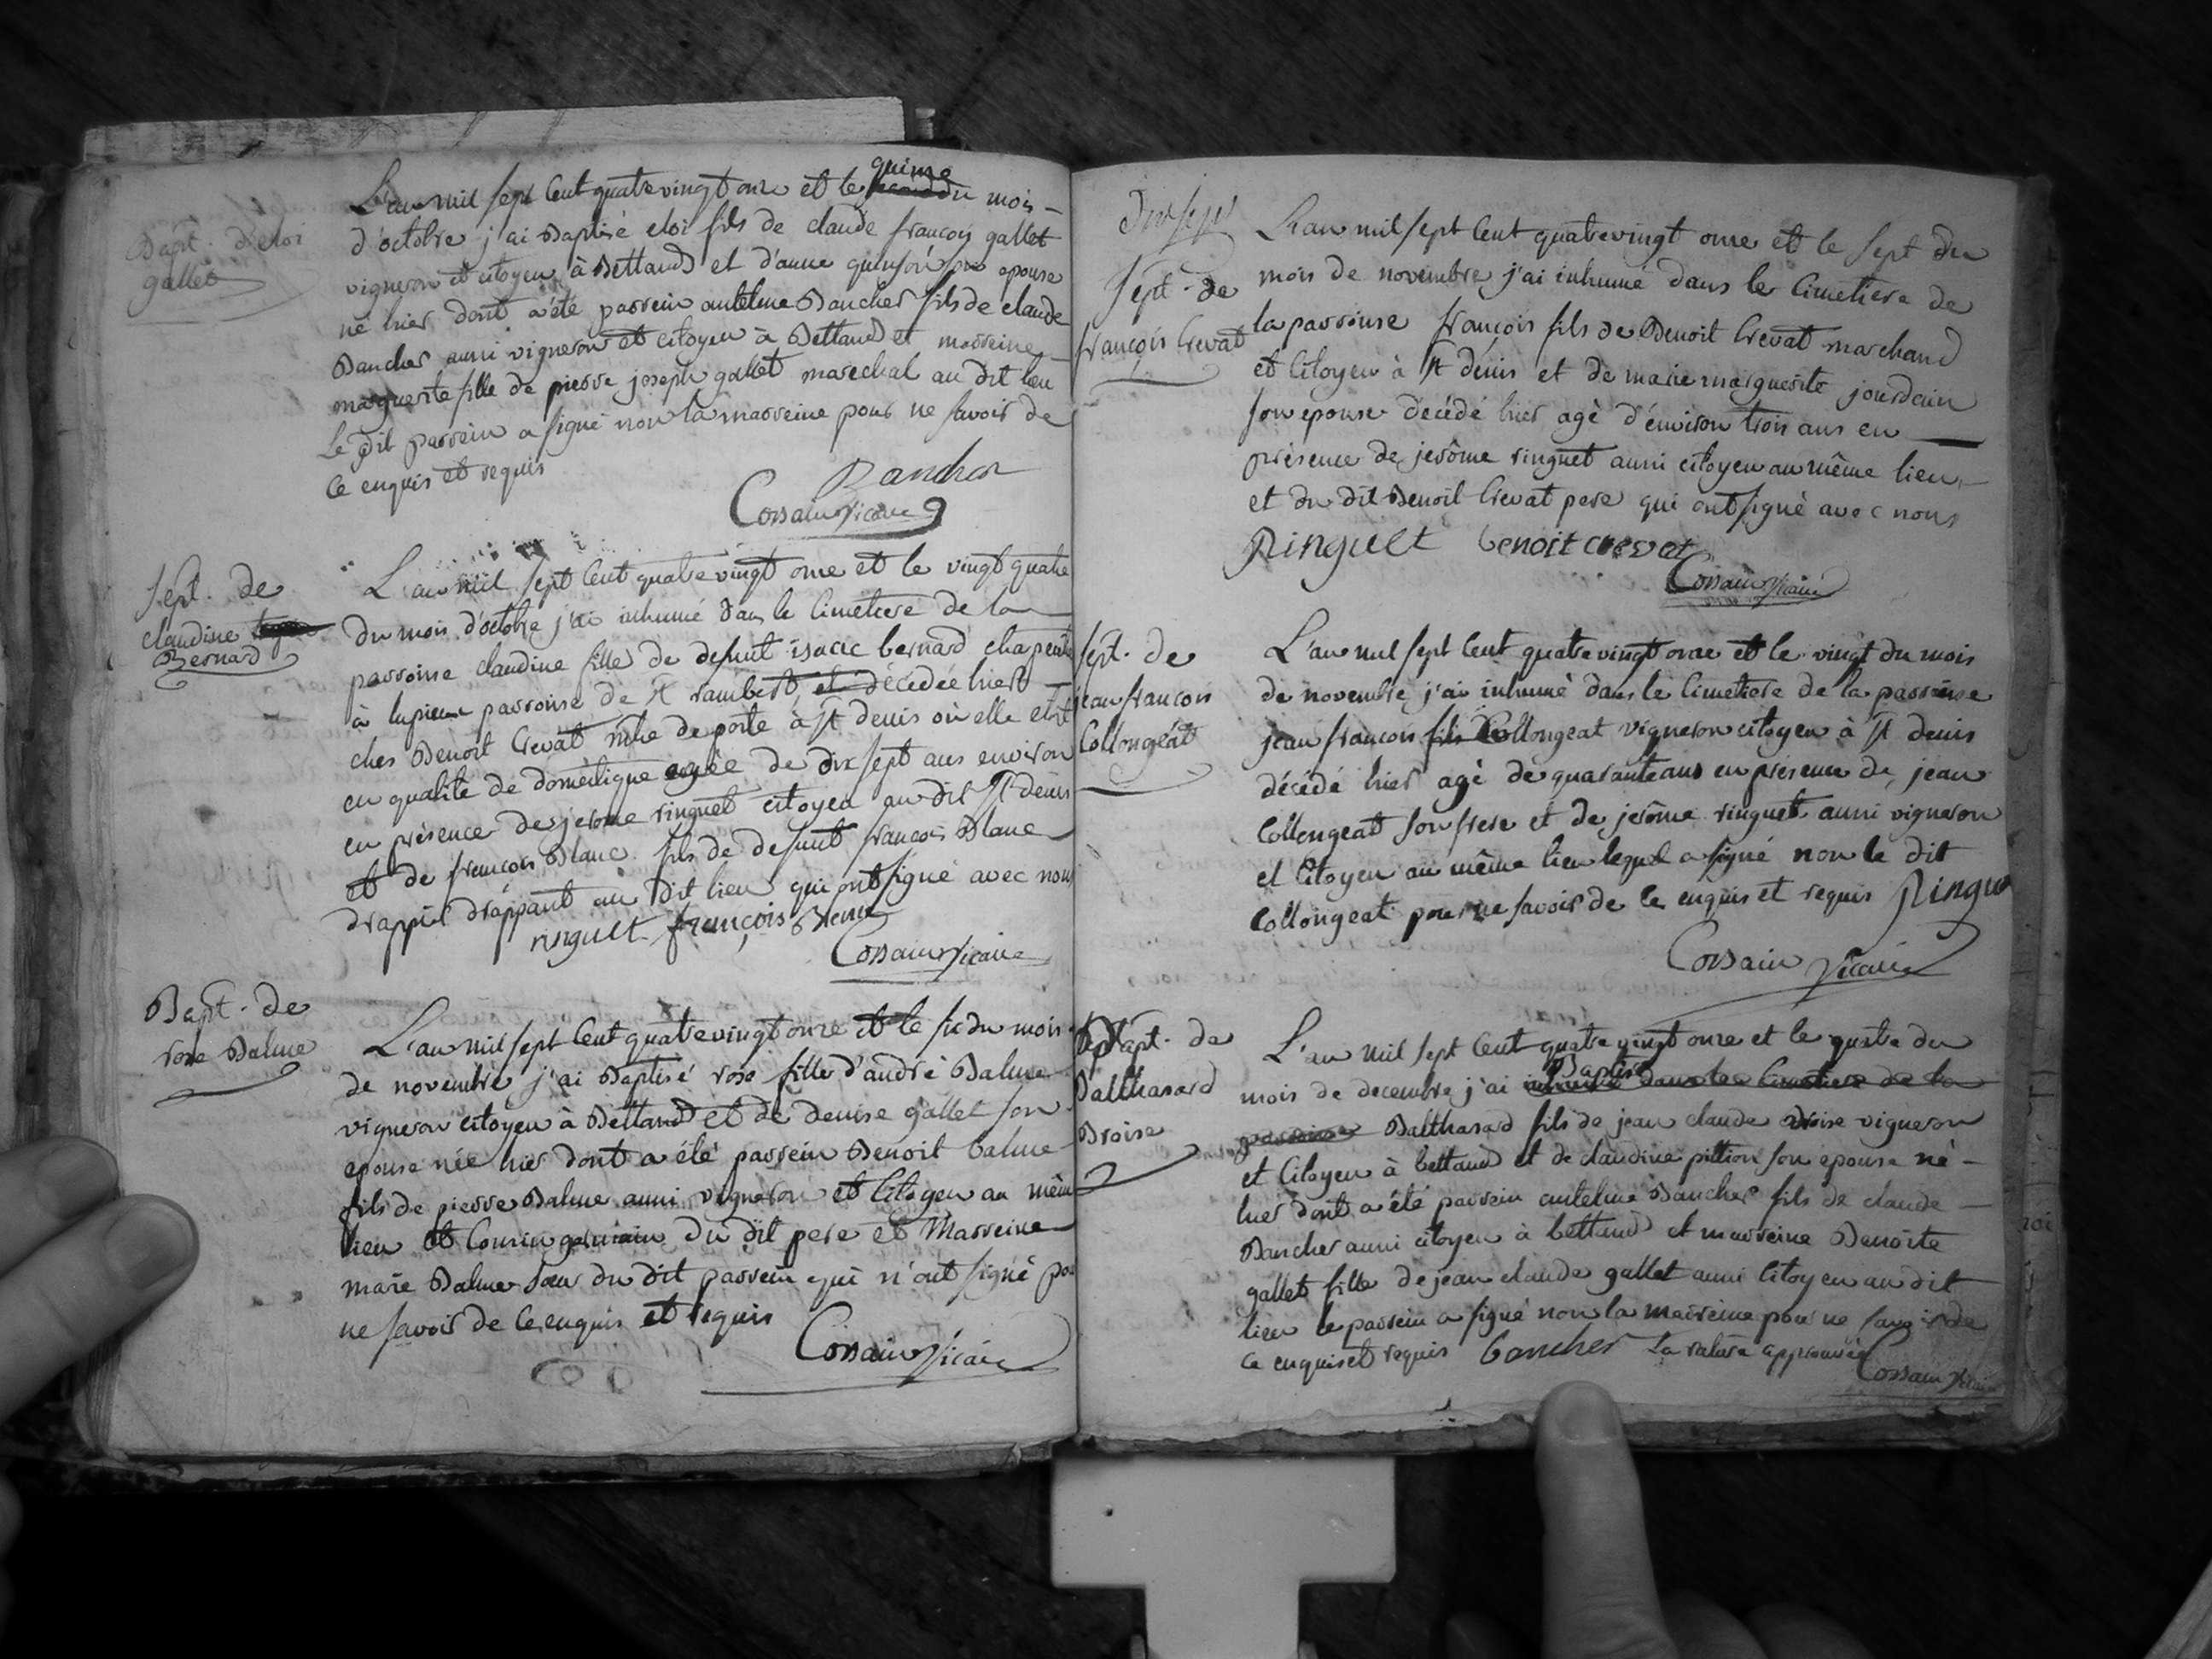 Bapt. d'eloi
gallet
L'an mil sept cent quatrevingt onze et le quinze du mois
d'octobre j'ai Baptisé eloi fils de claude francois gallet
vigneron et citoyen à Bettand et d'anne son epouse
né hier dont a été parrein antelme Bancher fils de claude
Bancher aussi vigneron et citoyen à Bettand et marreine
marguerite fille de pierre joseph gallet marechal au dit lieu
Le dit parrein a signé non la marreine pour ne savoir de
ce enquis et requis
Bancher
Corsain vicaire
Sept. de
claudine
Bernard
L'an mil sept cent quatrevingt onze et le vingt quatre
du mois d'octobre j'ai inhumé dans le cimetiere de la
parroisse claudine fille de defunt isaac bernard
à lupieu parroisse de St rambert et décédée hier
ches Benoit Crevat de porte à St denis où elle etoit
en qualité de domestique agée de dix sept ans environ
en présence de jerome ringuet citoyen au dit St denis
et de francois Blanc fils de defunt francois Blanc
drappier drappant au dit lieu qui ont signé avec nous
ringuet françois Blanc
Corsain vicaire
Bapt. de
rose Balme
L'an mil sept cent quatrevingt onze et le six du mois
de novembre j'ai Baptisé rose fille d'andré Balme
vigneron citoyen à Bettand et de denise gallet son
epouse née hier dont a été parrein Benoit balme
fils de pierre Balme aussi vigneron et citoyen au même
lieu et cousin germain du dit pere et Marreine
marie Balme sœur du dit parrein qui n'ont signé pour
ne savoir de ce enquis et requis
Corsain vicaire
Sept. de
françois Crevat
L'an mil sept cent quatrevingt onze et le sept du
mois de novembre j'ai inhumé dans le cimetiere de
la parroisse françois fils de Benoit Crevat marchand
et citoyen à St denis et de marie marguerite jourdain
son epouse décédé hier agé d'environ trois ans en
présence de jerôme ringuet aussi citoyen au même lieu
et du dit Benoit Crevat pere qui ont signé avec nous
Ringuet benoit crevat
Corsain vicaire
Sept. de
jean francois
Collongeat
L'an mil sept cent quatrevingt onze et le vingt du mois
de novembre j'ai inhumé dans le cimetiere de la parroisse
jean francois fils Collongeat vigneron citoyen à St denis
décédé hier agé de quarante ans en présence de jean
Collongeat son frere et de jerôme ringuet aussi vigneron
et citoyen au même lieu lequel a signé non le dit
Collongeat pour ne savoir de ce enquis et requis Ringue
Corsain vicaire
Bapt. de
Balthasard
Broise
L'an mil sept cent quatre vingt onze et le quatre du
mois de decembre j'ai Baptisé inhumé dans le cimetiere de la
parroisse Balthasard fils de jean claude Broise vigneron
et citoyen à bettand et de claudine pittion son epouse né
hier dont a été parrein antelme Bancher fils de claude
Bancher aussi citoyen à bettand et marreine Benoite
gallet fille de jean claude gallet aussi citoyen au dit
lieu le parrein a signé non la marreine pour ne savoir de
ce enquis et requis bancher La rature approuvée
Corsain vicaire